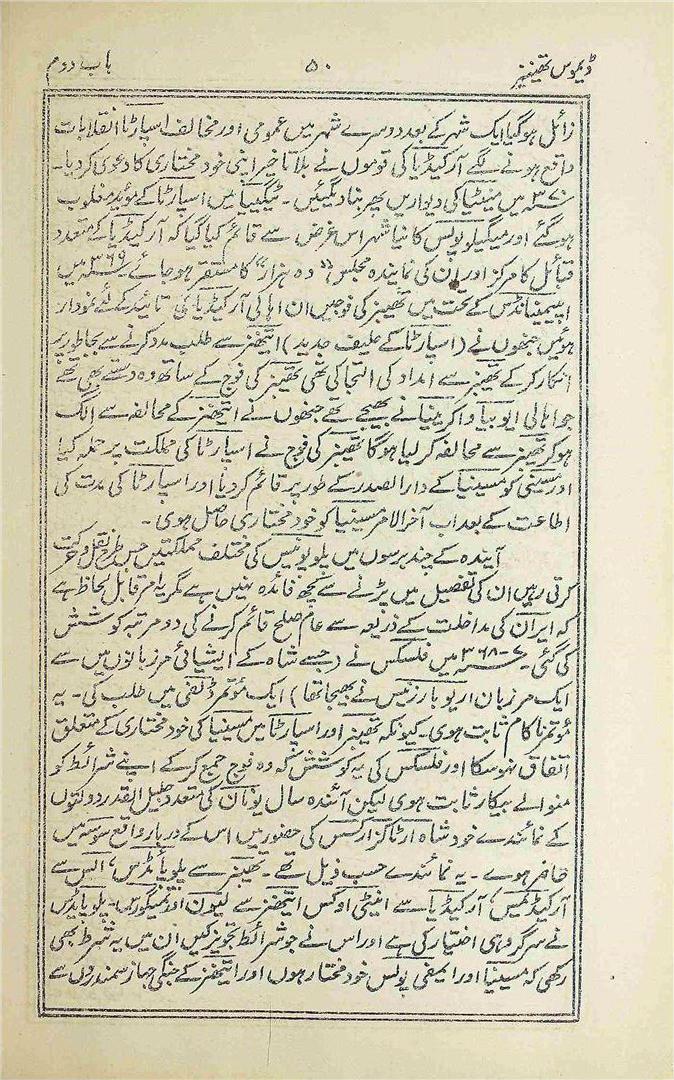 ڈیموس تھینیز ۵۰ باب دوم
زائل ہوگیا ایک شہر کے بعد دوسرے شہر میں عمومی اور مخالف اسپارٹا انقلابات
واقع ہونے لگے آرکیڈیا کی قوموں نے بلا تاخیر اپنی خود مختاری کا دعویٰ کر دیا۔
۳۷۰ء میں مینٹینیا کی دیواریں پھر بنا دیگئیں۔ ٹیگییا میں اسپارٹا کے مؤید مغلوب
ہوگئے اور میگیلوپولس کا نیا شہر اس غرض سے قائم کیا گیا کہ آرکیڈیا کے متعدد
قبائل کا مرکز اور ان کی نمایندہ مجلس "دہ ہزار" کا مستقر ہو جائے ۳۶۹ء میں
ایپمینانڈس کے تحت میں تھیبز کی فوجیں ان اہالی آرکیڈیا کی تائید کے لئے نمودار
ہوئیں جنھوں نے (اسپارٹا کے حلیف جدید) ایتھنز سے طلب مدد کرنے سے بجا طور پر
انکار کر کے تھیبز سے امداد کی التجا کی تھی تھیبز کی فوج کے ساتھ وہ دستے بھی تھے
جو اہالی ایوبیا و اکرینیا نے بھیجے تھے جنھوں نے ایتھنز کے محالفہ سے الگ
ہوکر تھیبز سے محالفہ کر لیا ہوگا تھیبز کی فوج نے اسپارٹا کی مملکت پر حملہ کیا
اور مسینی کو مسینیا کے دار الصدر کے طور پر قائم کر دیا اور اسپارٹا کی مدت کی
اطاعت کے بعد اب آخر الامر مسینیا کو خود مختاری حاصل ہوی۔
آیندہ کے چند برسوں میں پلوپونیس کی مختلف مملکتیں جس طرح نقل و حرکت
کرتی رہیں ان کی تفصیل میں پڑنے سے کچھ فائدہ نہیں ہے مگر یہ امر قابل لحاظ ہے
کہ ایران کی مداخلت کے ذریعہ سے عام صلح قائم کرنے کی دو مرتبہ کوشش
کی گئی۔ ۳۶۸-۷ء میں فلسکس نے (جسے شاہ کے ایشیائی مرزبانوں میں سے
ایک مرزبان اریوبارزنیس نے بھیجا تھا) ایک مؤتمر ڈلفی میں طلب کی۔ یہ
مؤتمر ناکام ثابت ہوی۔ کیونکہ تھیبز اور اسپارٹا میں مسینیا کی خود مختاری کے متعلق
اتفاق نہوسکا اور فلسکس کی یہ کوشش کہ وہ فوج جمع کر کے اپنے شرائط کو
منوالے بیکار ثابت ہوی لیکن آئندہ سال یونان کی متعدد جلیل القدر دولتوں
کے نمائندے خود شاہ ارٹاگزارکسس کی حضور میں اس کے دربار واقع سوسہ میں
حاضر ہوے۔ یہ نمائندے حسب ذیل تھے۔ تھیبز سے پلوپائڈس، الس سے
آرکیڈمیس، آرکیڈیا سے انیٹی اوکس ایتھنز سے لیون اور ٹمیگورس۔ پلوپائڈس
نے سرگروہی اختیار کی ہے اور اس نے جو شرائط تجویز کیں ان میں یہ شرط بھی
رکھی کہ مسینیا اور ایمفی پولس خود مختار ہوں اور ایتھنز کے جنگی جہاز سمندروں سے